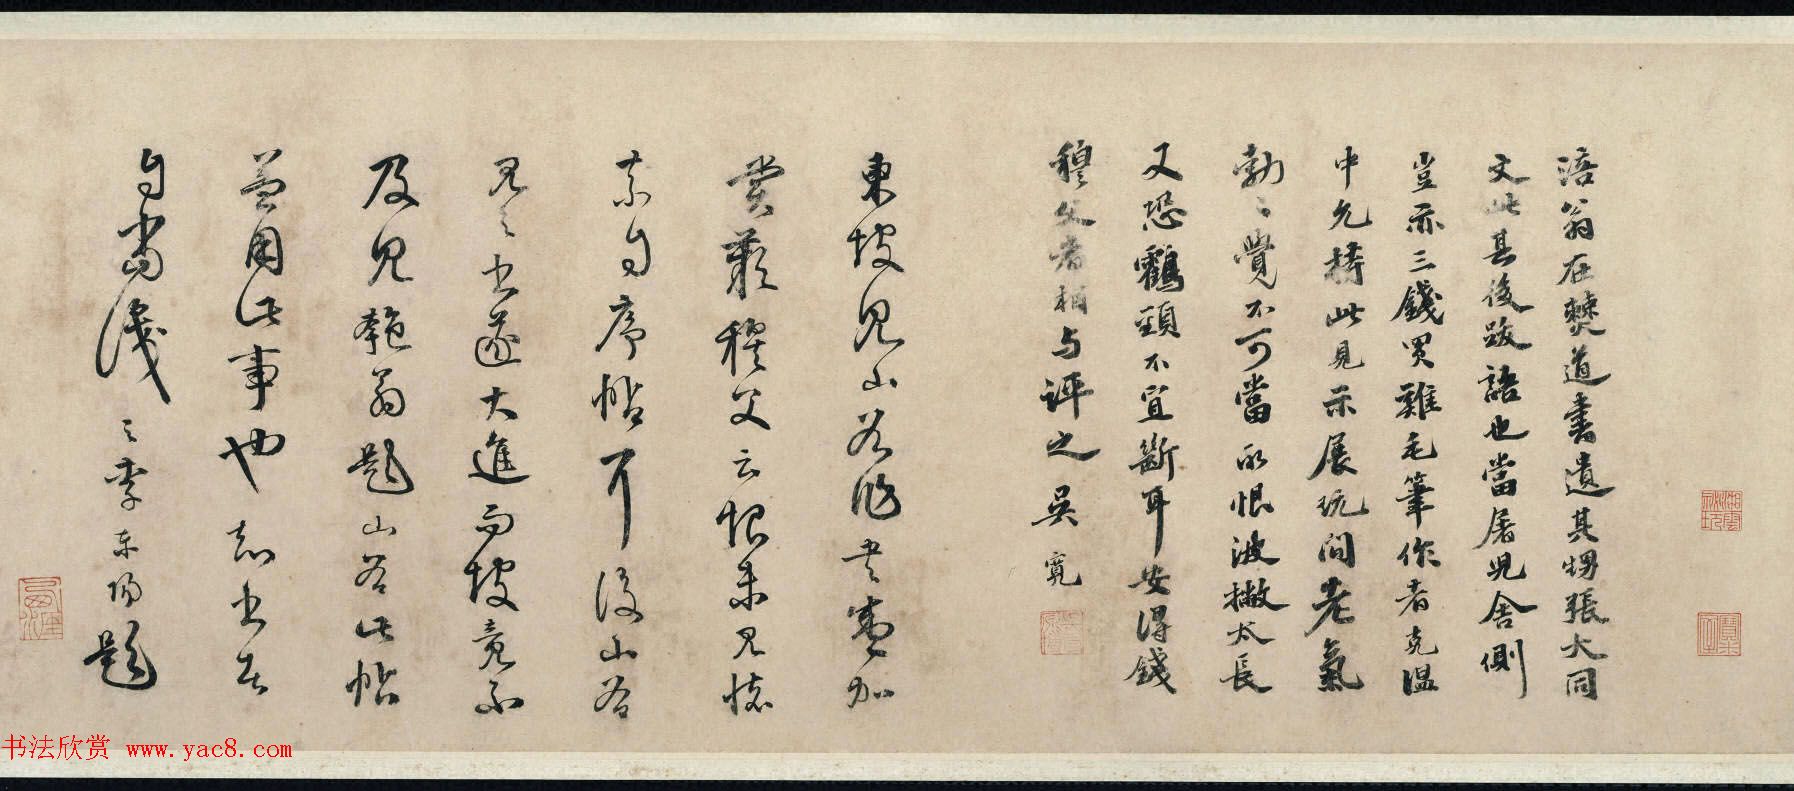 涪翁在僰道書遺其甥張大同
文此其後跋語也當屠兒舍側
豈亦三錢買雞毛筆作者克溫
中允持此見示展玩間老氣
勃〻覺不可當所恨波撇太長
又恐鶴頸不宜斷耳安得錢
穆父者相与評之 吳寬
東坡見山谷作書輒加
賞歎穆父云恨未見懷
素自序帖耳後山谷
見之書遂大進而坡竟不
及見匏翁題山谷此帖
蓋用此事也知書者
自當識之李東陽題
书法欣赏 www.yac8.com